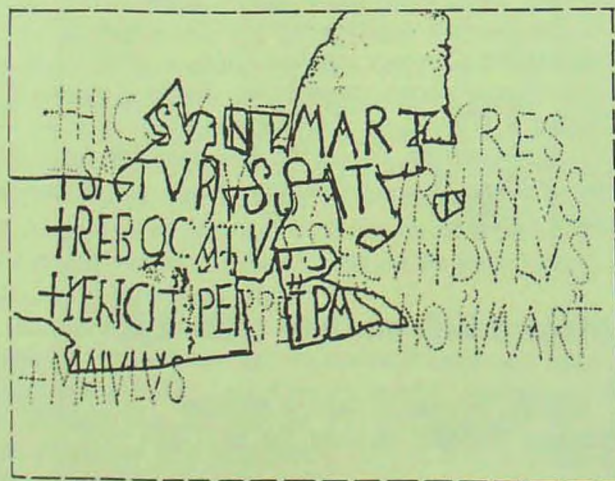 +HIC SVNT MARTYRES
+SATVRVS SATVRNINVS
+REBOCATVS SECVNDVLVS
+FELICIT PERPET PAS NON MART
+MAIVLVS